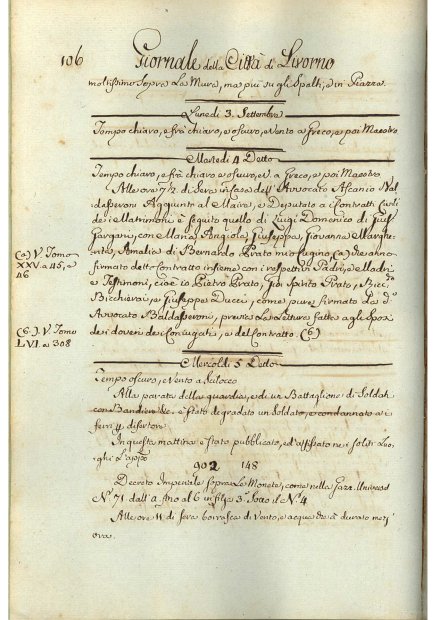 106 Giornale della Città di Livorno
moltissimo sopra Le Mura, ma più su gli Spalti, e in Piazza
Lunedi 3. Settembre
Tempo chiaro, e frà chiaro, e oscuro, e Vento a Greco, e poi Maestro
Martedi 4 Detto
Tempo chiaro, e frà chiaro e oscuro, e V. a Greco, e poi Maestro
Alle ore 7½ di Sera in Casa dell'Avvocato Ascanio
Baldasseroni Aggiunto al Maire, e Deputato a i Contratti Civili
de i Matrimoni è seguito quello di Luigi Domenico di
Gargani, con Maria Angiola Giuseppa, Giovanna
Amalia di Bernardo Prato mio Cugino (a) che anno
firmato detto Contratto insieme con i respettivi Padri, e Madri
e Testimoni, cioè io Pietro Prato, Gio. Spirito Prato,
Bicchierai, e Giuseppe Ducci, come pure firmato La do
Avvocato Baldasseroni, previa La Lettura fatta a gli
de i doveri de i Coniugati, e del Contratto. (b)
(a) V. Tomo
XXV. a 45, e
46
(b) V. Tomo
LVI. a 308
Mercoldi 5 Detto
Tempo oscuro, e Vento a Scilocco
Alla parata della guardia, e di un Battaglione di Soldati
con Bandiere &c. è stato degradato un Soldato, e condannato a i
ferri p. disertore
In questa mattina è stato pubblicato, ed affissato ne i soliti
Luoghi L'app.
902 148
Decreto Imperiale sopra Le Monete, come nella Gazz. Universa
N.° 71 dall'a fino al 6 in fil. 3° Sotto il N.° 4
Alle ore 11 di sera borrasca di Vento, e acqua che à durato
ora.